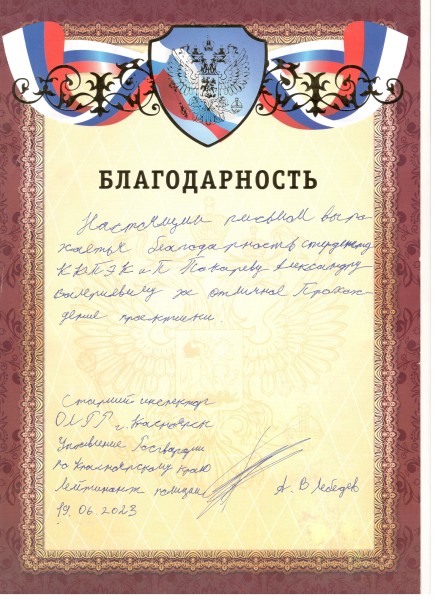 БЛАГОДАРНОСТЬ
Настоящим письмом выра-
жается благодарность студенту
ККПЭК и П Токареву Александру
Валериевичу за отличное Прохож-
дение практики
Старший инспектор
ОЛРР г. Красноярск
Управление Росгвардии
по Красноярскому краю
Лейтенант полиции
А. В Лебедев
19.06.2023